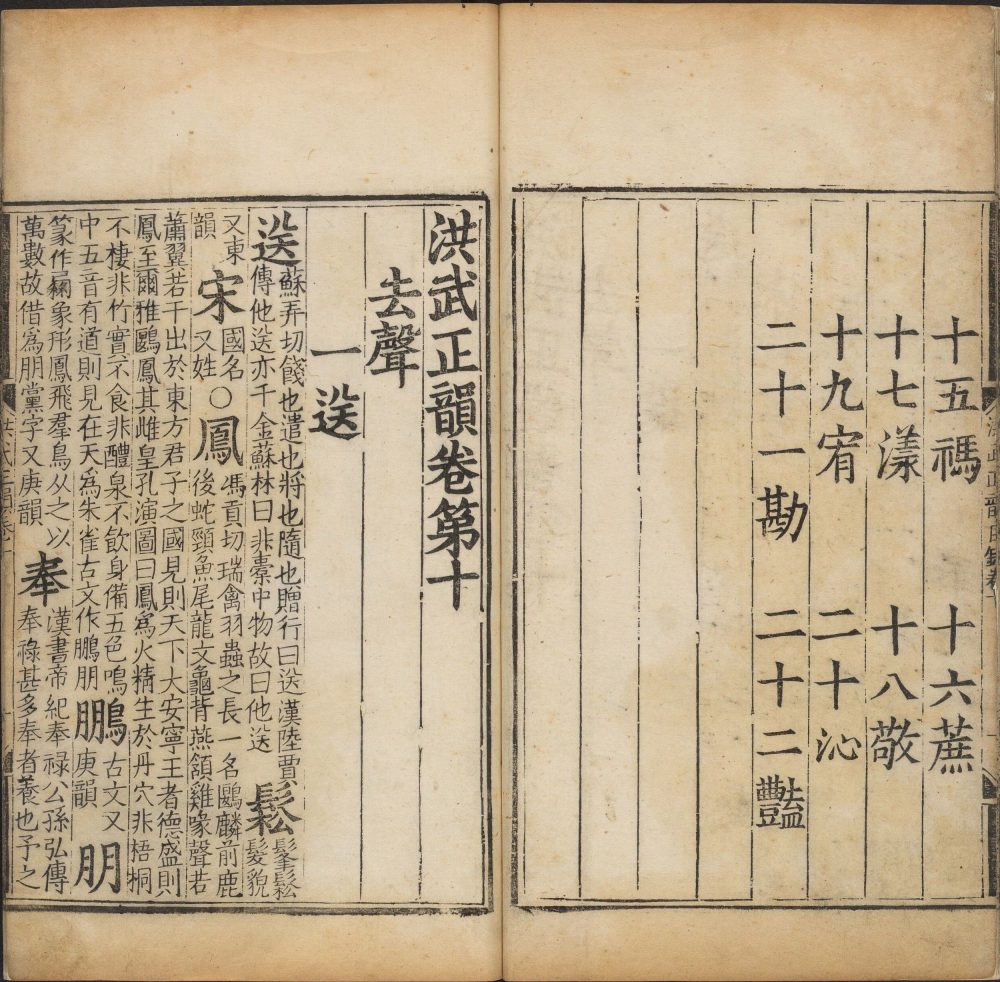 十五禡　十六蔗
十七漾　十八敬
十九宥　二十沁
二十一勘　二十二豔
洪武正韻卷第十
去聲
一送
送
蘇弄切餞也遣也將也隨也贈行曰送漢陸賈
傳他送亦千金蘇林曰非橐中物故曰他送
鬆
髼鬆
髮貌
又東
韻
宋
國名
又姓
○
鳳
馮貢切瑞禽羽蟲之長一名鶠麟前鹿
後蛇頸魚尾龍文龜背燕頷雞喙聲若
簫翼若干出於東方君子之國見則天下大安寧王者德盛則
鳳至爾雅鶠鳳其雌皇孔演圖曰鳳爲火精生於丹穴非梧桐
不棲非竹實不食非醴泉不飲身備五色鳴
中五音有道則見在天爲朱雀古文作鵬朋
鵬
古文又
庚韻
朋
篆作象形鳳飛羣鳥从之以
萬數故借爲朋黨字又庚韻
奉
漢書帝紀奉祿公孫弘傳
奉祿甚多奉者養也予之